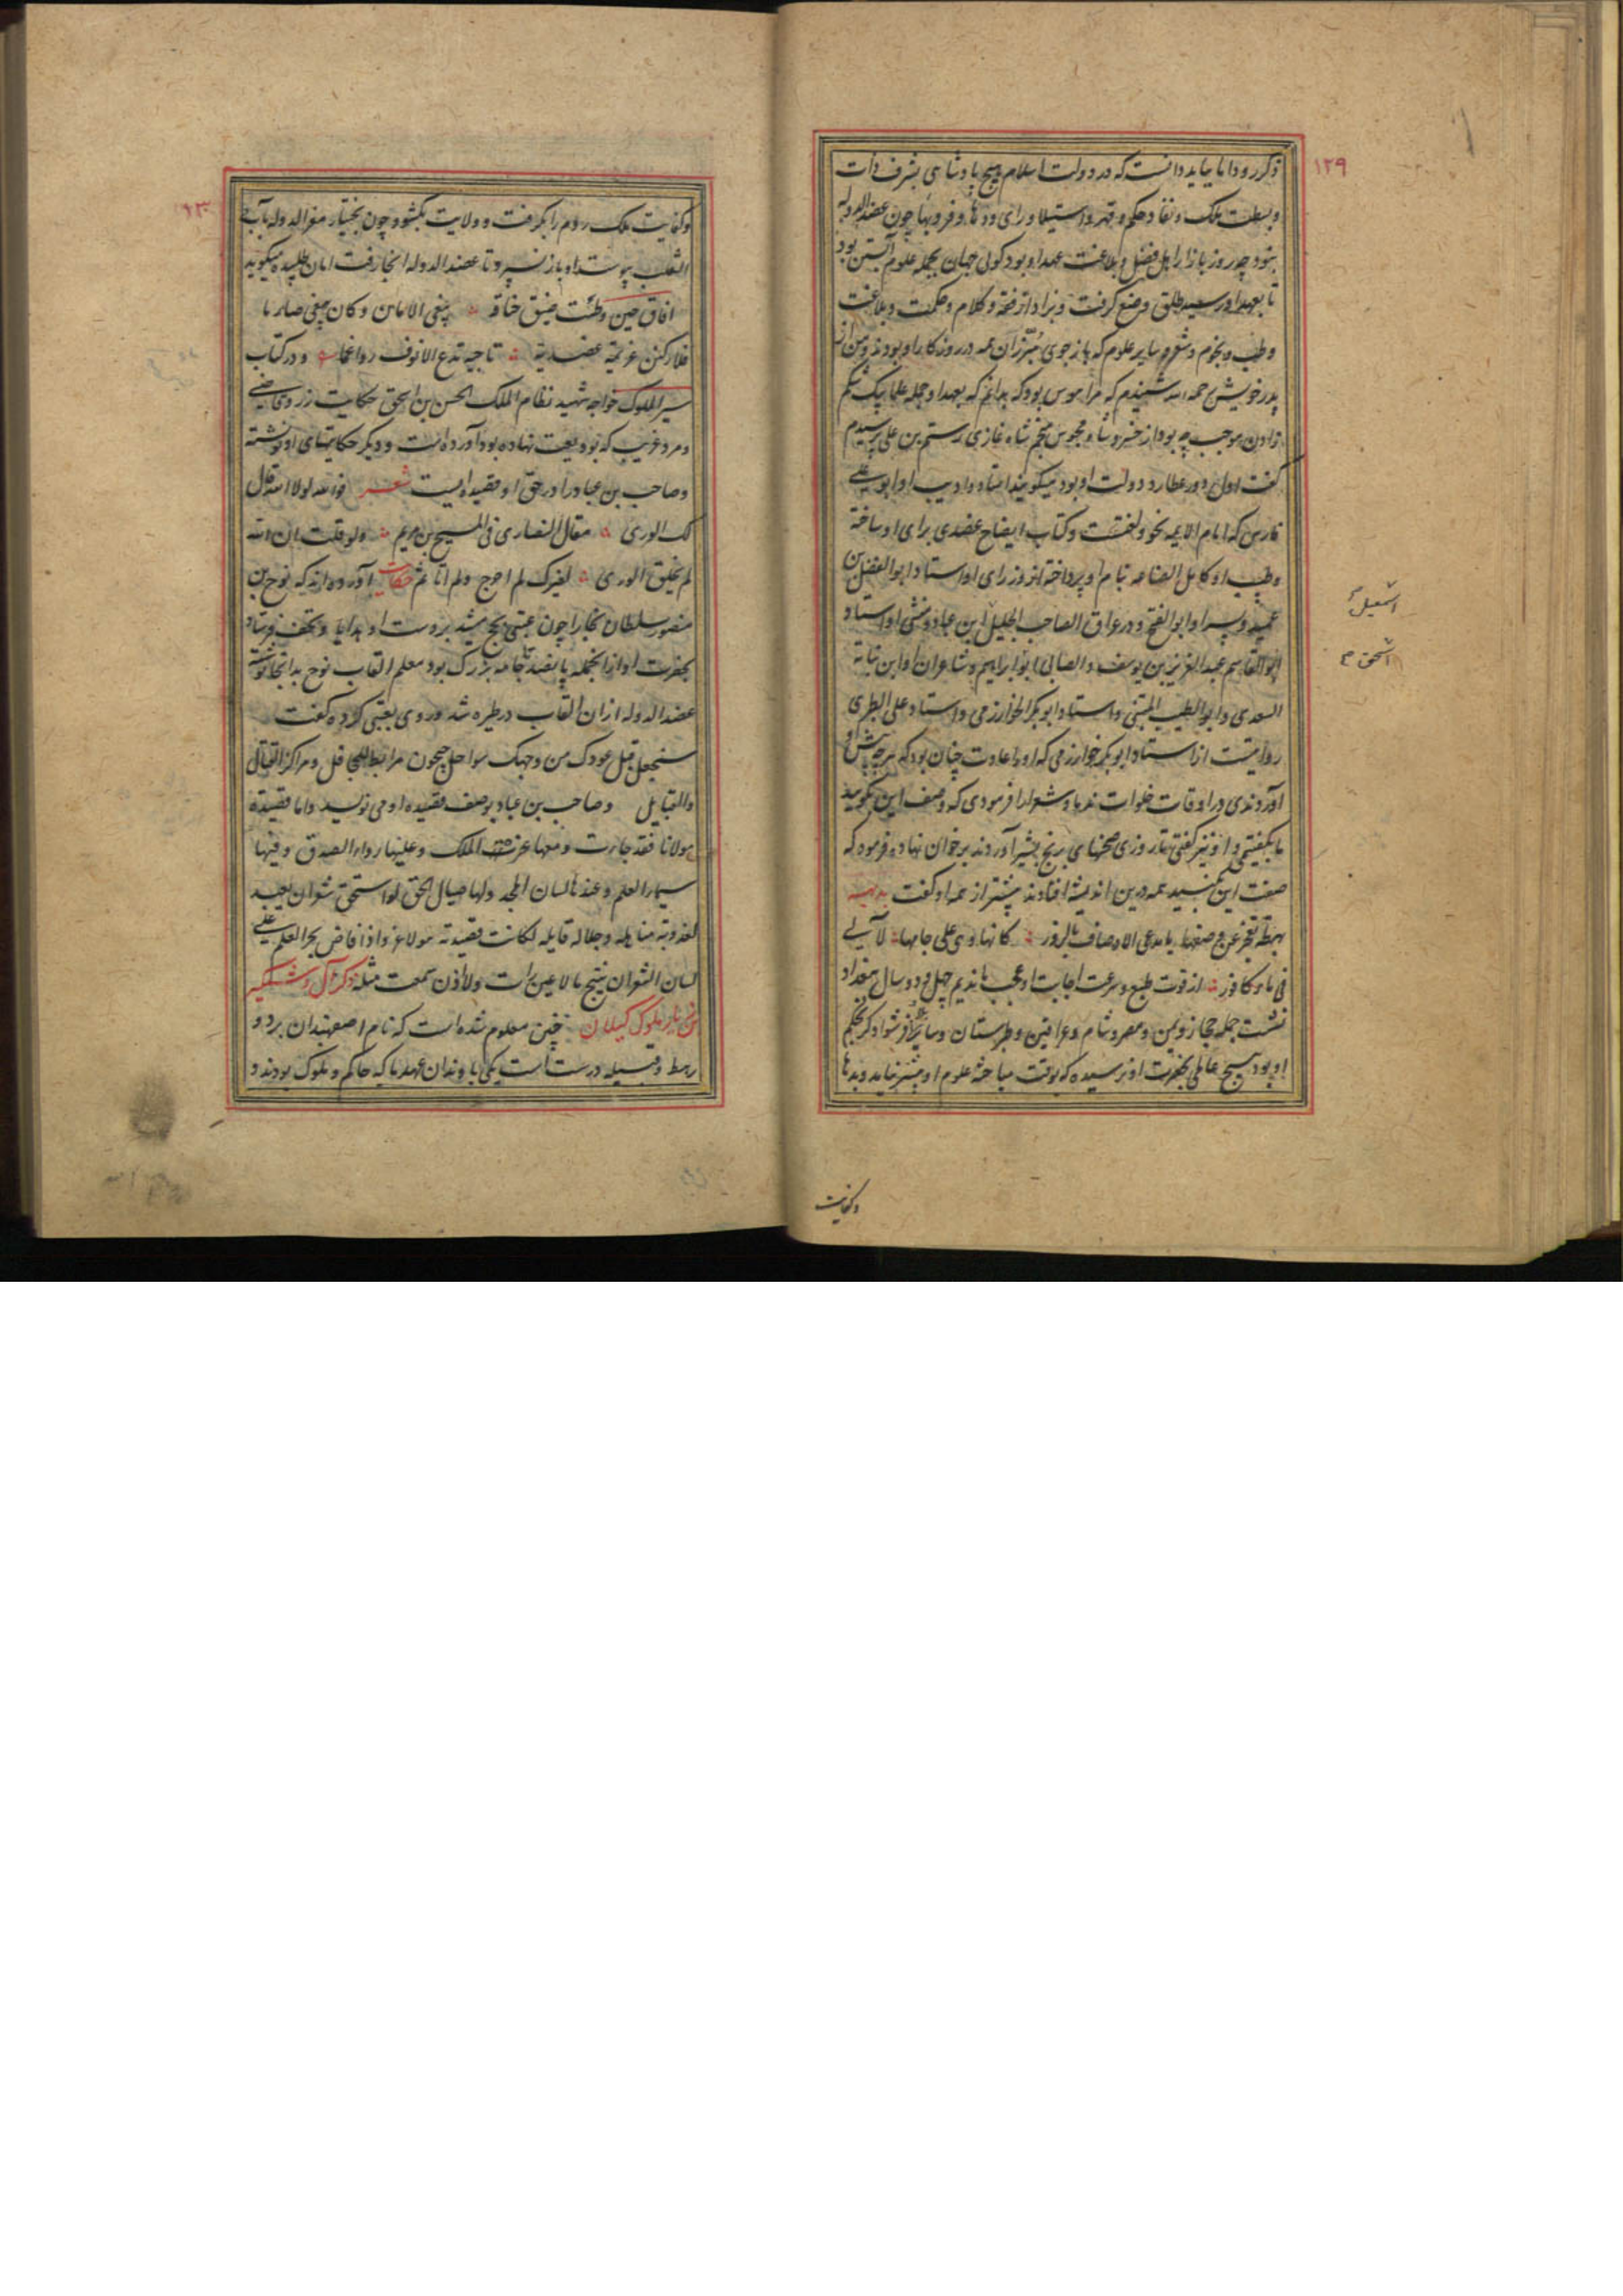 ۱۲۹
ذکر رود اما بباید دانست که در دولت اسلام هیچ پادشاهی بشرف ذات
و بسطت ملک و نفاذ حکم و قهر و استیلا و رای و دها و فر و بها چون عضد الدوله
نبود چه روز بازار اهل فضل و بلاغت عهد او بود گوئی جهان بجمله علوم آبستن بود
تا بعهد او رسید طلق وضع گرفت و بزاد از فقه و کلام و حکمت و بلاغت
و طب و نجوم و شعر و سایر علوم که باز جوی مبرزان همه در روزگار او بودند و من از
پدر خویش رحمه الله شنیدم که مرا هوس بود که بدانم که بعهد او جمله علما بیک شکم
زادن موجب چه بود از خسرو شاه مجوس منجم شاه غازی رستم بن علی پرسیدم
گفت اول دور عطارد دولت او بود میگویند استاد و ادیب او ابو علی
فارس که امام الایمه نحو و لغتست و کتاب ایضاح عضدی برای او ساخته
و طبیب او کامل الصناعه بنام او پرداخته از وزرای او استاد ابو الفضل بن
عمید و پسر او ابو الفتح و در عراق الصاحب الجلیل ابن عباد و منشی او استاد
اسمعیل
ابو القاسم عبد العزیز بن یوسف و الصابی ابو ابراهیم و شاعران او ابن نباته
اسحق م
السعدی و ابو الطیب المتنبی و استاد ابو بکر الخوارزمی و استاد علی الطبری
روایتست از استاد ابو بکر خوارزمی که او را عادت چنان بود که هر چه پیش او
آوردندی در اوقات خلوات ندما و شعرا را فرمودی که وصف این بگویید
ما بگفتیمی و او نیز گفتی تا روزی صحنهای برنج بشیر آوردند بر خوان نهاد و فرمود که
صفت این کنید همه درین اندیشه افتادند پیشتر از همه او گفت بدیهه
بهطة تعجز عن وصفها یا مدعی الاوصاف بالزور کانها و هی علی جامها لآلئ
فی ماء کافور از قوت طبع و سرعت اجابت او عجب ماندیم چهل و دو سال ببغداد
نشست جمله حجاز و یمن و مصر و شام و عراقین و طبرستان و سایر فرشوادگر بحکم
او بود هیچ عاملی بحضرت او نرسیده که بوقت مباحثه علوم او مبشر نیاید و بدها
وکفایت
۱۳۰
و کفایت ملک روم را بگرفت و ولایت بگشود چون بختیار معز الدوله با ابی
التغلب پیوست او باز نسپرد تا عضد الدوله آنجا رفت امان طلبیده میگوید
افاق حین وطئت ضیق خناقه یبغی الامان و کان یبغی صارما
فلارکبن عزیمة عضدیة تاجیة تدع الانوف رواغما و در کتاب
سیر الملوک خواجه شهید نظام الملک الحسن بن اسحق حکایت زر و قاضی
و مرد غریب که بودیعت نهاده بود آورده است و دیگر حکایتهای او نوشته
و صاحب بن عباد را در حق او قصیده ایست شعر فوالله لولا الله قال
لک الوری مقال النصاری فی المسیح بن مریم ولو قلت ان الله
لم یخلق الوری لغیرک لم احرج ولم اتاثم حکایت آورده اند که نوح بن
منصور سلطان بخارا چون عتبی بحج میشد بر دست او هدایا و تحف فرستاد
بحضرت او از آنجمله پانصد تا جامه بزرگ بود معلم القاب نوح بدانجا نوشته
عضد الدوله از ان القاب در طیره شد و روی بعتبی کرده گفت
سنجعل قبل عودک من وجهک سواحل جیحون مرابط القنابل و مراکز القنا
والقبایل و صاحب بن عباد بوصف قصیده او می نویسد واما قصیدة
مولانا فقد جاءت و معها عزة الملک وعلیها رواء الصدق وفیها
سیماء العلم وعندها لسان المجد ولها صیال الحق لو استحق شعر ان یعبد
لعذوبة مناهله وجلاله قایله لکانت قصیدته مولا غرو اذا فاض بحر العلم علی
لسان الشعر ان ینتج ما لا عین رات ولا اذن سمعت مثله ذکر آل وشمگیر
بن زیار ملوک گیلان چنین معلوم شده است که نام اصفهبدان برد و
رهط و قبیله درست است یکی باوندان عهد ما که حاکم و ملوک بودند و